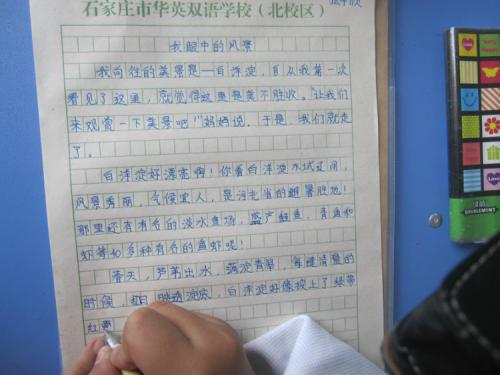 石家庄市华英双语学校（北校区）
我眼中的风景
我向往的美景是——白洋淀，自从我第一次
看见了这里，就觉得这里是美不胜收。“让我们
来观赏一下美景吧！”妈妈说。于是，我们就走
了。
白洋淀好漂亮啊！你看白洋淀水域辽阔，
风景秀丽，气候宜人，是河北省的避暑胜地！
那里还有有名的淡水鱼场，盛产鲤鱼，青鱼和
虾等40多种有名的鱼虾呢！
春天，芦苇出水，满淀青翠，每逢清晨的
时候，红日映透淀底，白洋淀好像披上了绿带
红